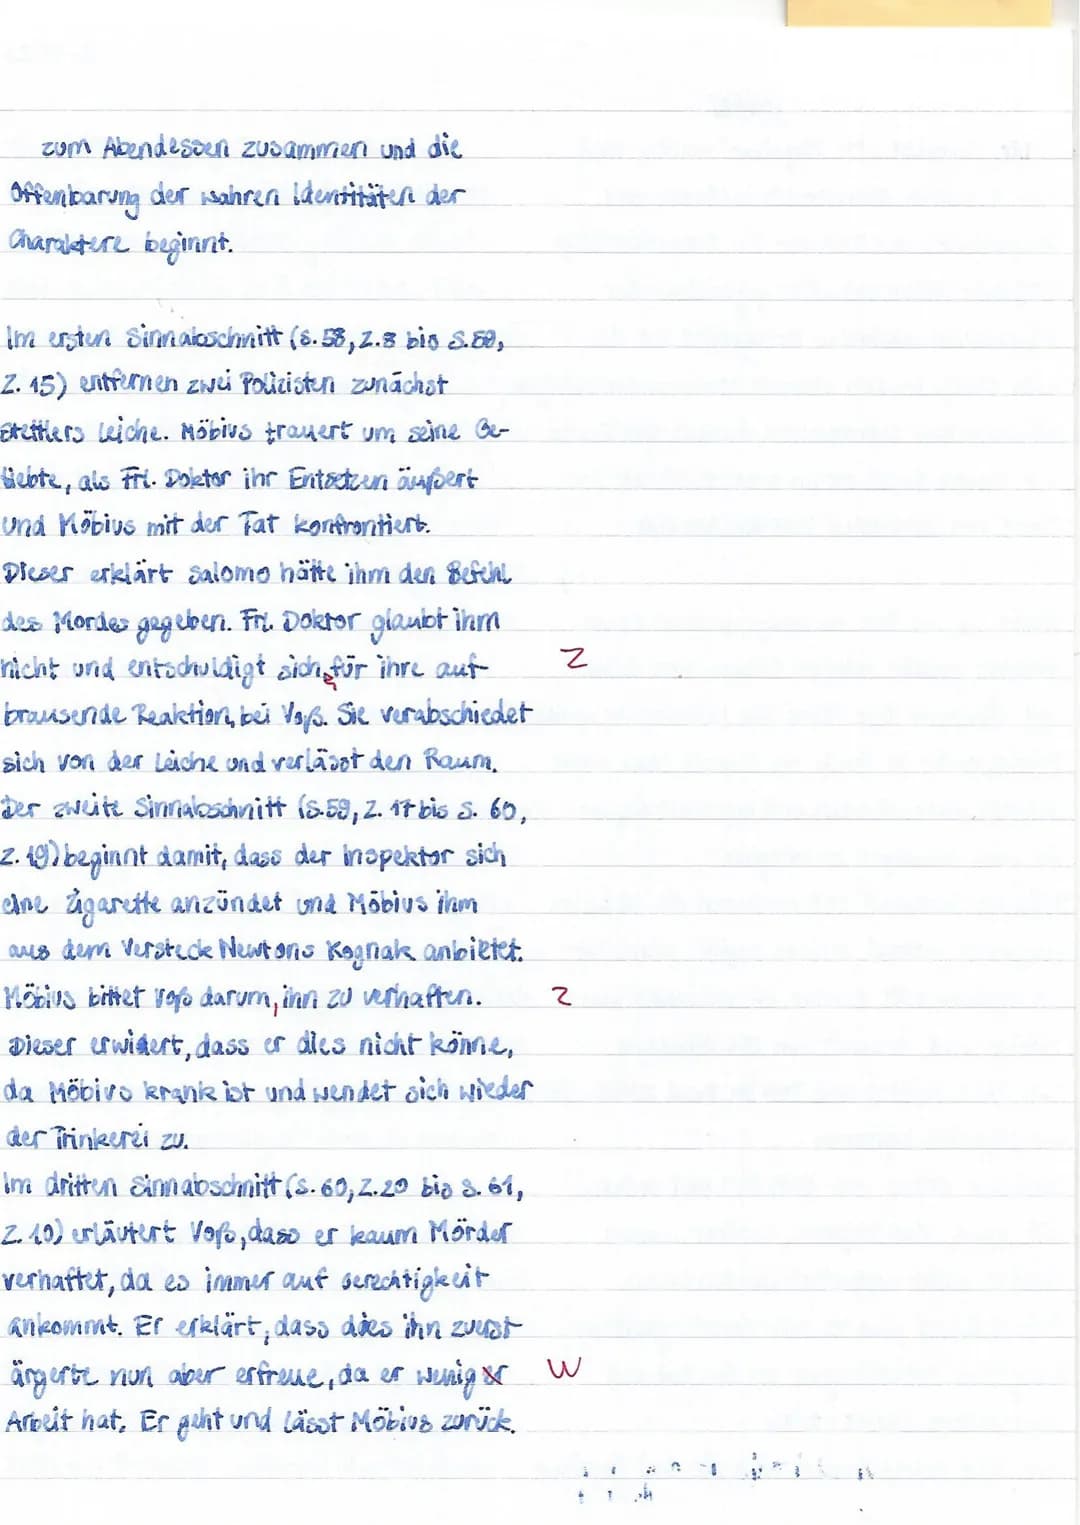 zum Abendessen zusammen und die
Offenbarung der wahren Identitäten der
Charaktere beginnt.
Im ersten Sinnabschnitt (S. 58, Z. 8 bis S. 59,
Z. 15) entfernen zwei Polizisten zunächst
Stettlers Leiche. Möbius trauert um seine Ge-
liebte, als Frl. Doktor ihr Entsetzen äußert
und Möbius mit der Tat konfrontiert.
Dieser erklärt Salomo hätte ihm den Befehl
des Mordes gegeben. Frl. Doktor glaubt ihm
nicht und entschuldigt sich, für ihre auf- Z
brausende Reaktion, bei Voß. Sie verabschiedet
sich von der Leiche und verlässt den Raum.
Der zweite Sinnabschnitt (S. 59, Z. 17 bis S. 60,
Z. 19) beginnt damit, dass der Inspektor sich
eine Zigarette anzündet und Möbius ihm
aus dem Versteck Newtons Kognak anbietet.
Möbius bittet Voß darum, ihn zu verhaften. Z
Dieser erwidert, dass er dies nicht könne,
da Möbius krank ist und wendet sich wieder
der Trinkerei zu.
Im dritten Sinnabschnitt (S. 60, Z. 20 bis S. 61,
Z. 10) erläutert Voß, dass er kaum Mörder
verhaftet, da es immer auf Gerechtigkeit
ankommt. Er erklärt, dass dies ihn zuerst
ärgerte nun aber erfreue, da er weniger W
Arbeit hat. Er geht und lässt Möbius zurück.